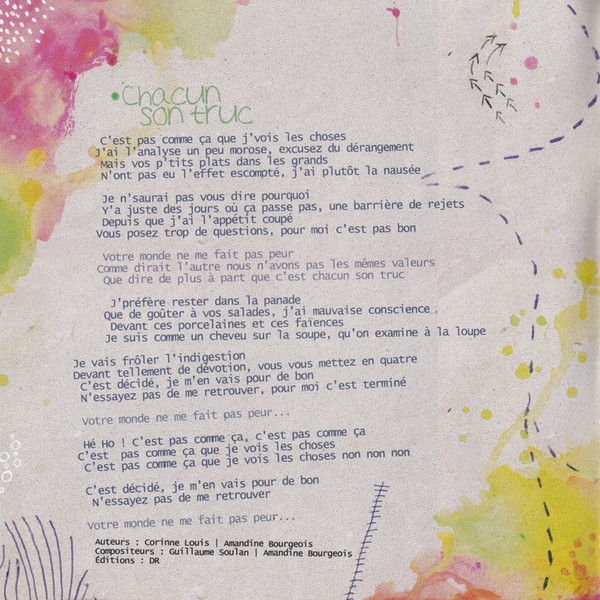 Chacun
son truc
C'est pas comme ça que j'vois les choses
J'ai l'analyse un peu morose, excusez du dérangement
Mais vos p'tits plats dans les grands
N'ont pas eu l'effet escompté, j'ai plutôt la nausée
Je n'saurai pas vous dire pourquoi
Y'a juste des jours où ça passe pas, une barrière de rejets
Depuis que j'ai l'appétit coupé
Vous posez trop de questions, pour moi c'est pas bon
Votre monde ne me fait pas peur
Comme dirait l'autre nous n'avons pas les mêmes valeurs
Que dire de plus à part que c'est chacun son truc
J'préfère rester dans la panade
Que de goûter à vos salades, j'ai mauvaise conscience
Devant ces porcelaines et ces faïences
Je suis comme un cheveu sur la soupe, qu'on examine à la loupe
Je vais frôler l'indigestion
Devant tellement de dévotion, vous vous mettez en quatre
C'est décidé, je m'en vais pour de bon
N'essayez pas de me retrouver, pour moi c'est terminé
Votre monde ne me fait pas peur...
Hé Ho ! C'est pas comme ça, c'est pas comme ça
C'est pas comme ça que je vois les choses
C'est pas comme ça que je vois les choses non non non
C'est décidé, je m'en vais pour de bon
N'essayez pas de me retrouver
Votre monde ne me fait pas peur...
Auteurs : Corinne Louis | Amandine Bourgeois
Compositeurs : Guillaume Soulan | Amandine Bourgeois
Éditions : DR